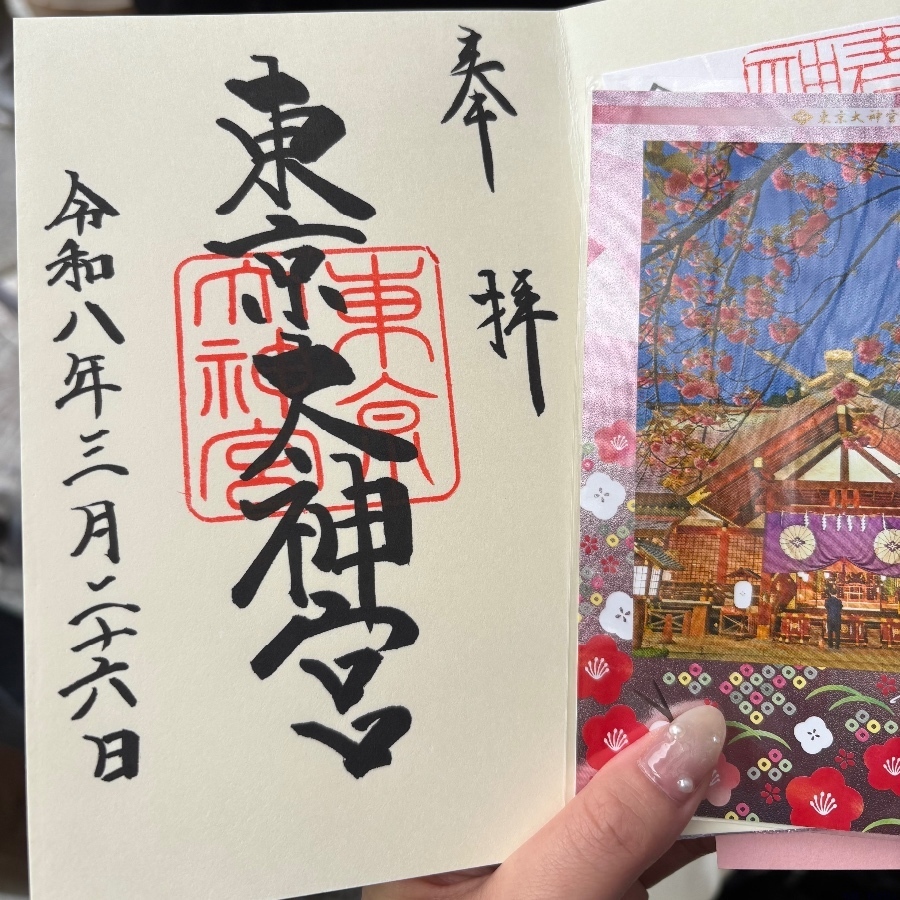 奉拝
東京大神宮
東京大神宮
令和八年三月二十六日
東京大神宮